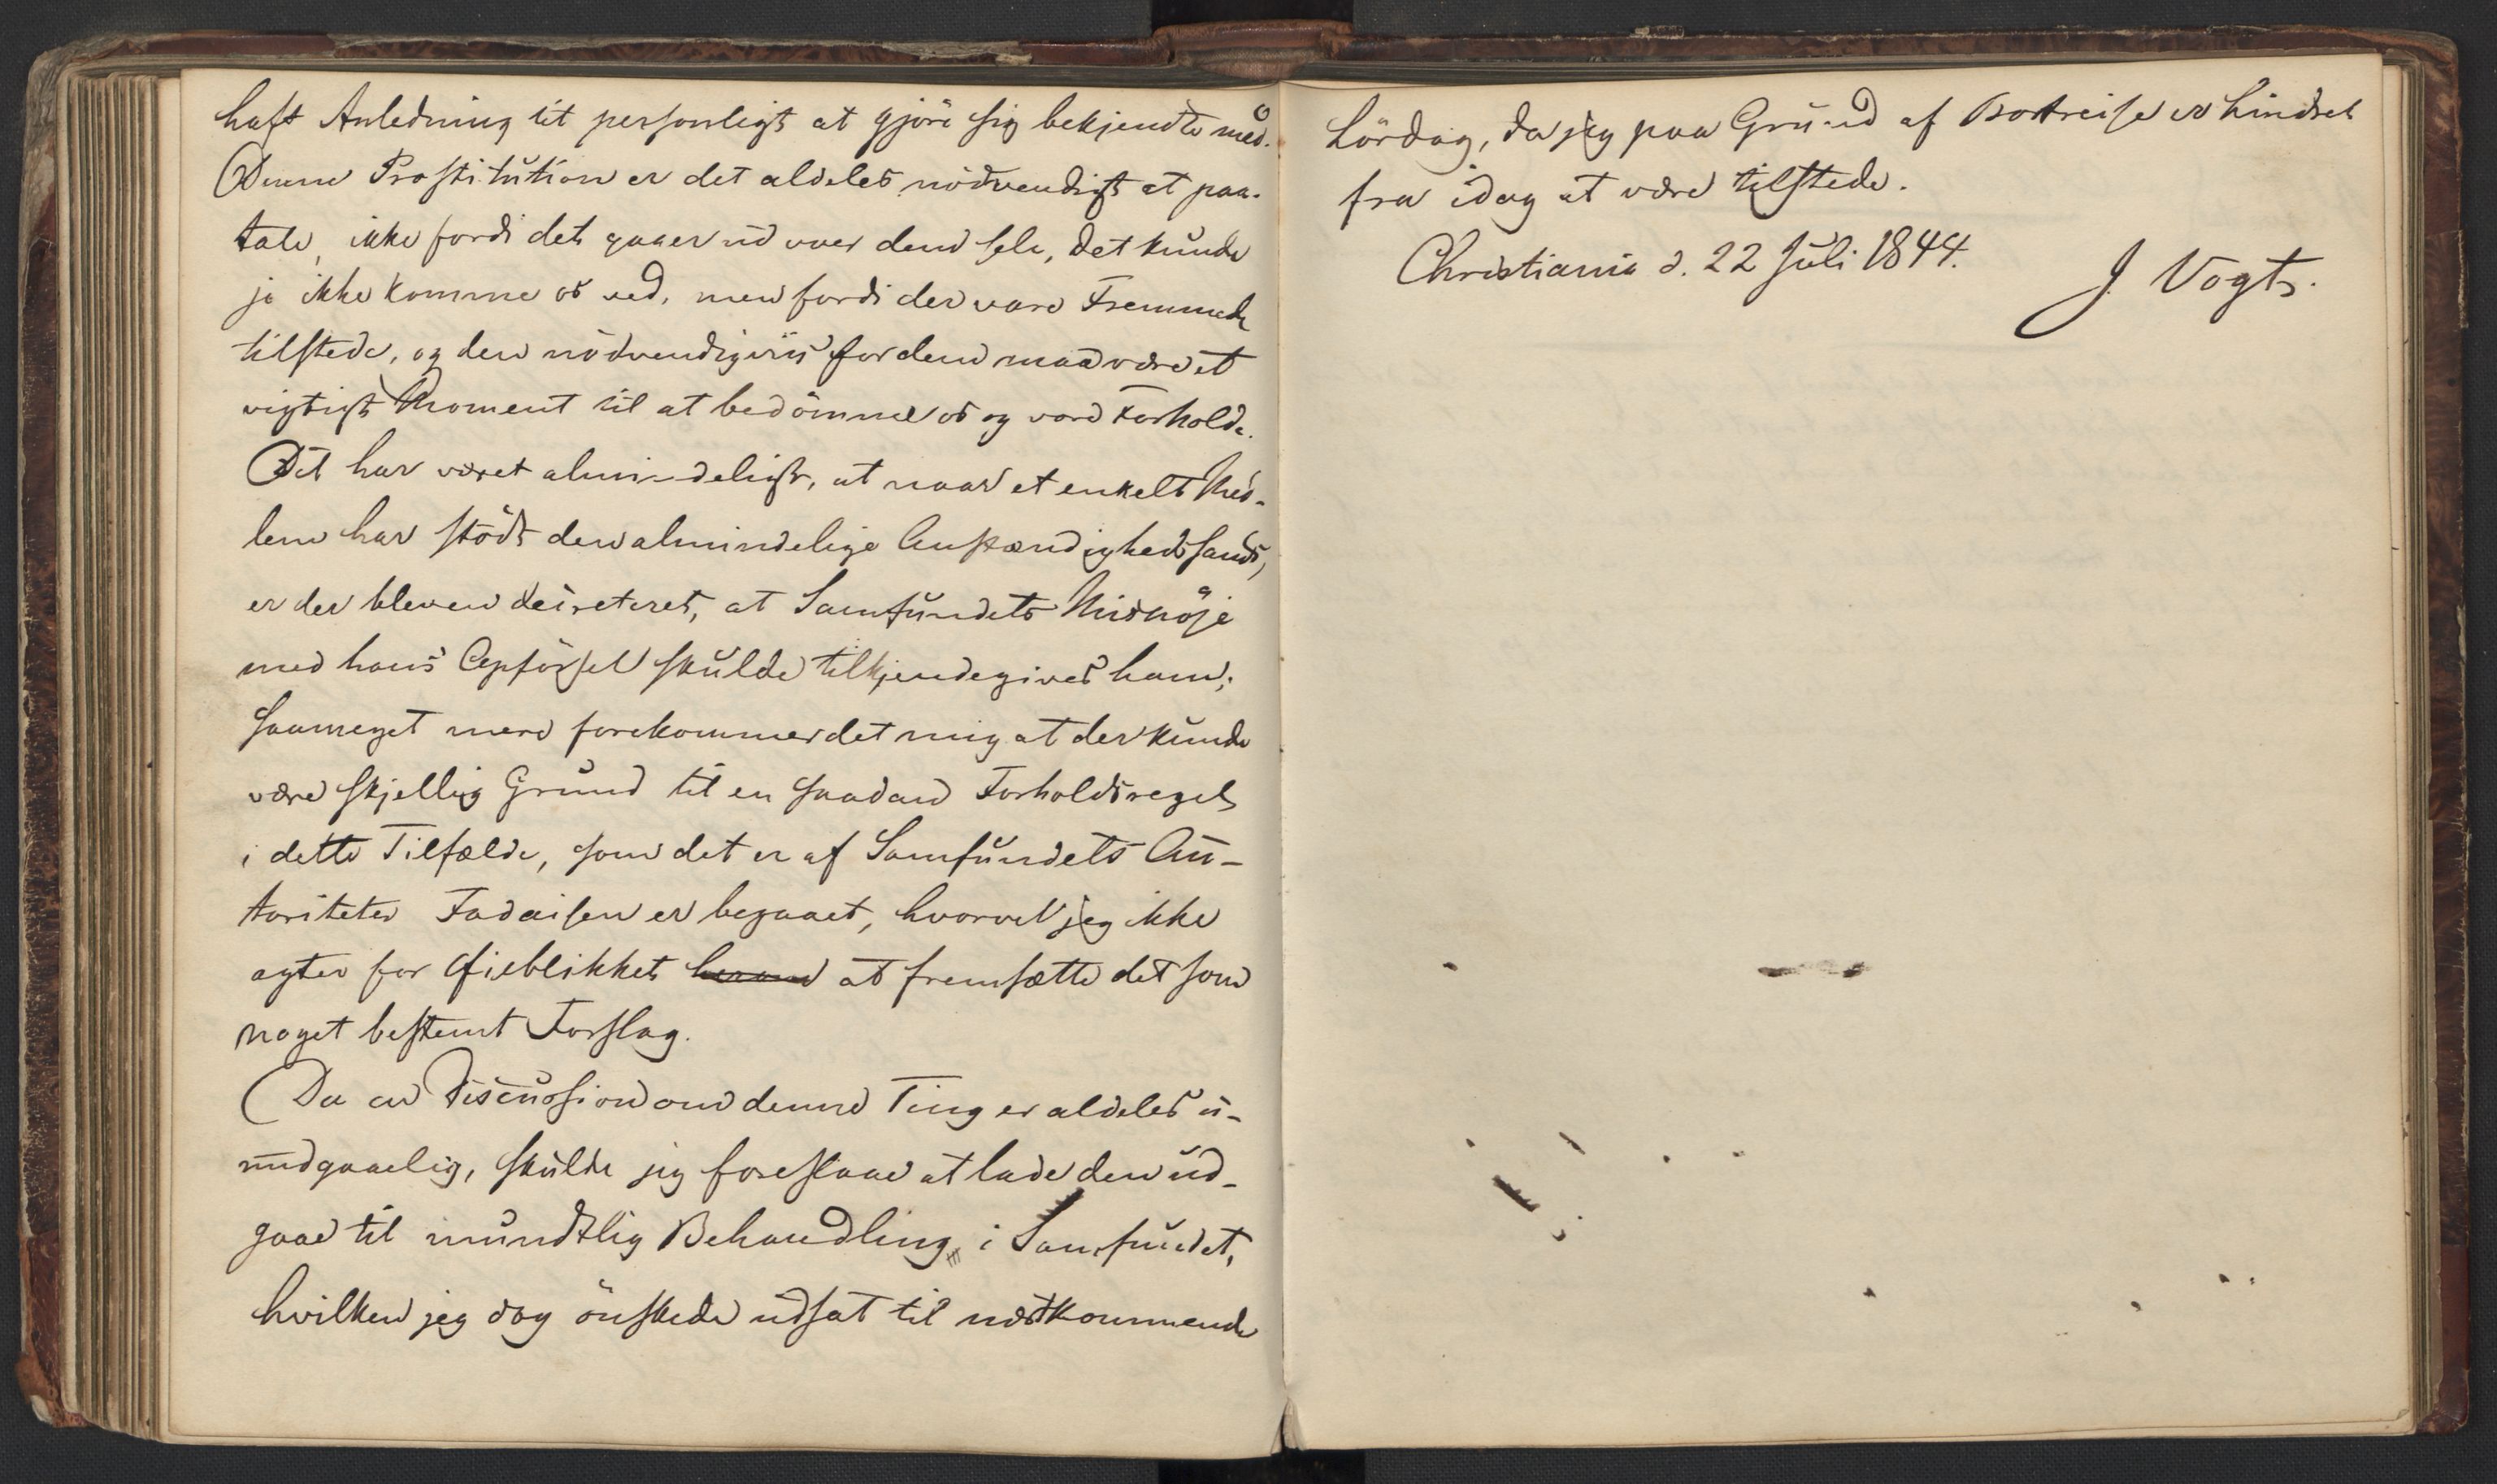 haft Anledning til personligt at gjöre sig bekjendte med.
Denne Prostitution er det aldeles nödvendigt at paa-
tale, ikke fordi det gaaer ud over dem selv, det kunde
jo ikke komme os ved, men fordi der vare Fremmede
tilstede, og den nödvendigviis for dem maa være et
vigtigt Moment til at bedömme os og vore Forholde.
Det har været almindeligt, at naar et enkelt Med-
lem har stödt den almindelige Anstændighedssands,
er det bleven decreteret, at Samfundets Misnöje
med hans Opförsel skulde tilkjendegives ham;
saameget mere forekommer det mig at der kunde
være skjellig Grund til en saadan Forholdsregel
i dette Tilfælde, som det er af Samfundets Au-
toriteter Fadaisen er begaaet, hvorvel jeg ikke
agter for Øieblikket at fremsætte det som
noget bestemt Forslag.
Da en Discussion om denne Ting er aldeles u-
undgaaelig, skulde jeg foreslaae at lade den ud-
gaae til mundtlig Behandling i Samfundet,
hvilken jeg dog önskede udsat til næstkommende
Lördag, da jeg paa Grund af Bortreise er hindret
fra idag at være tilstede.
Christiania d. 22 Juli 1844.
J Vogt.